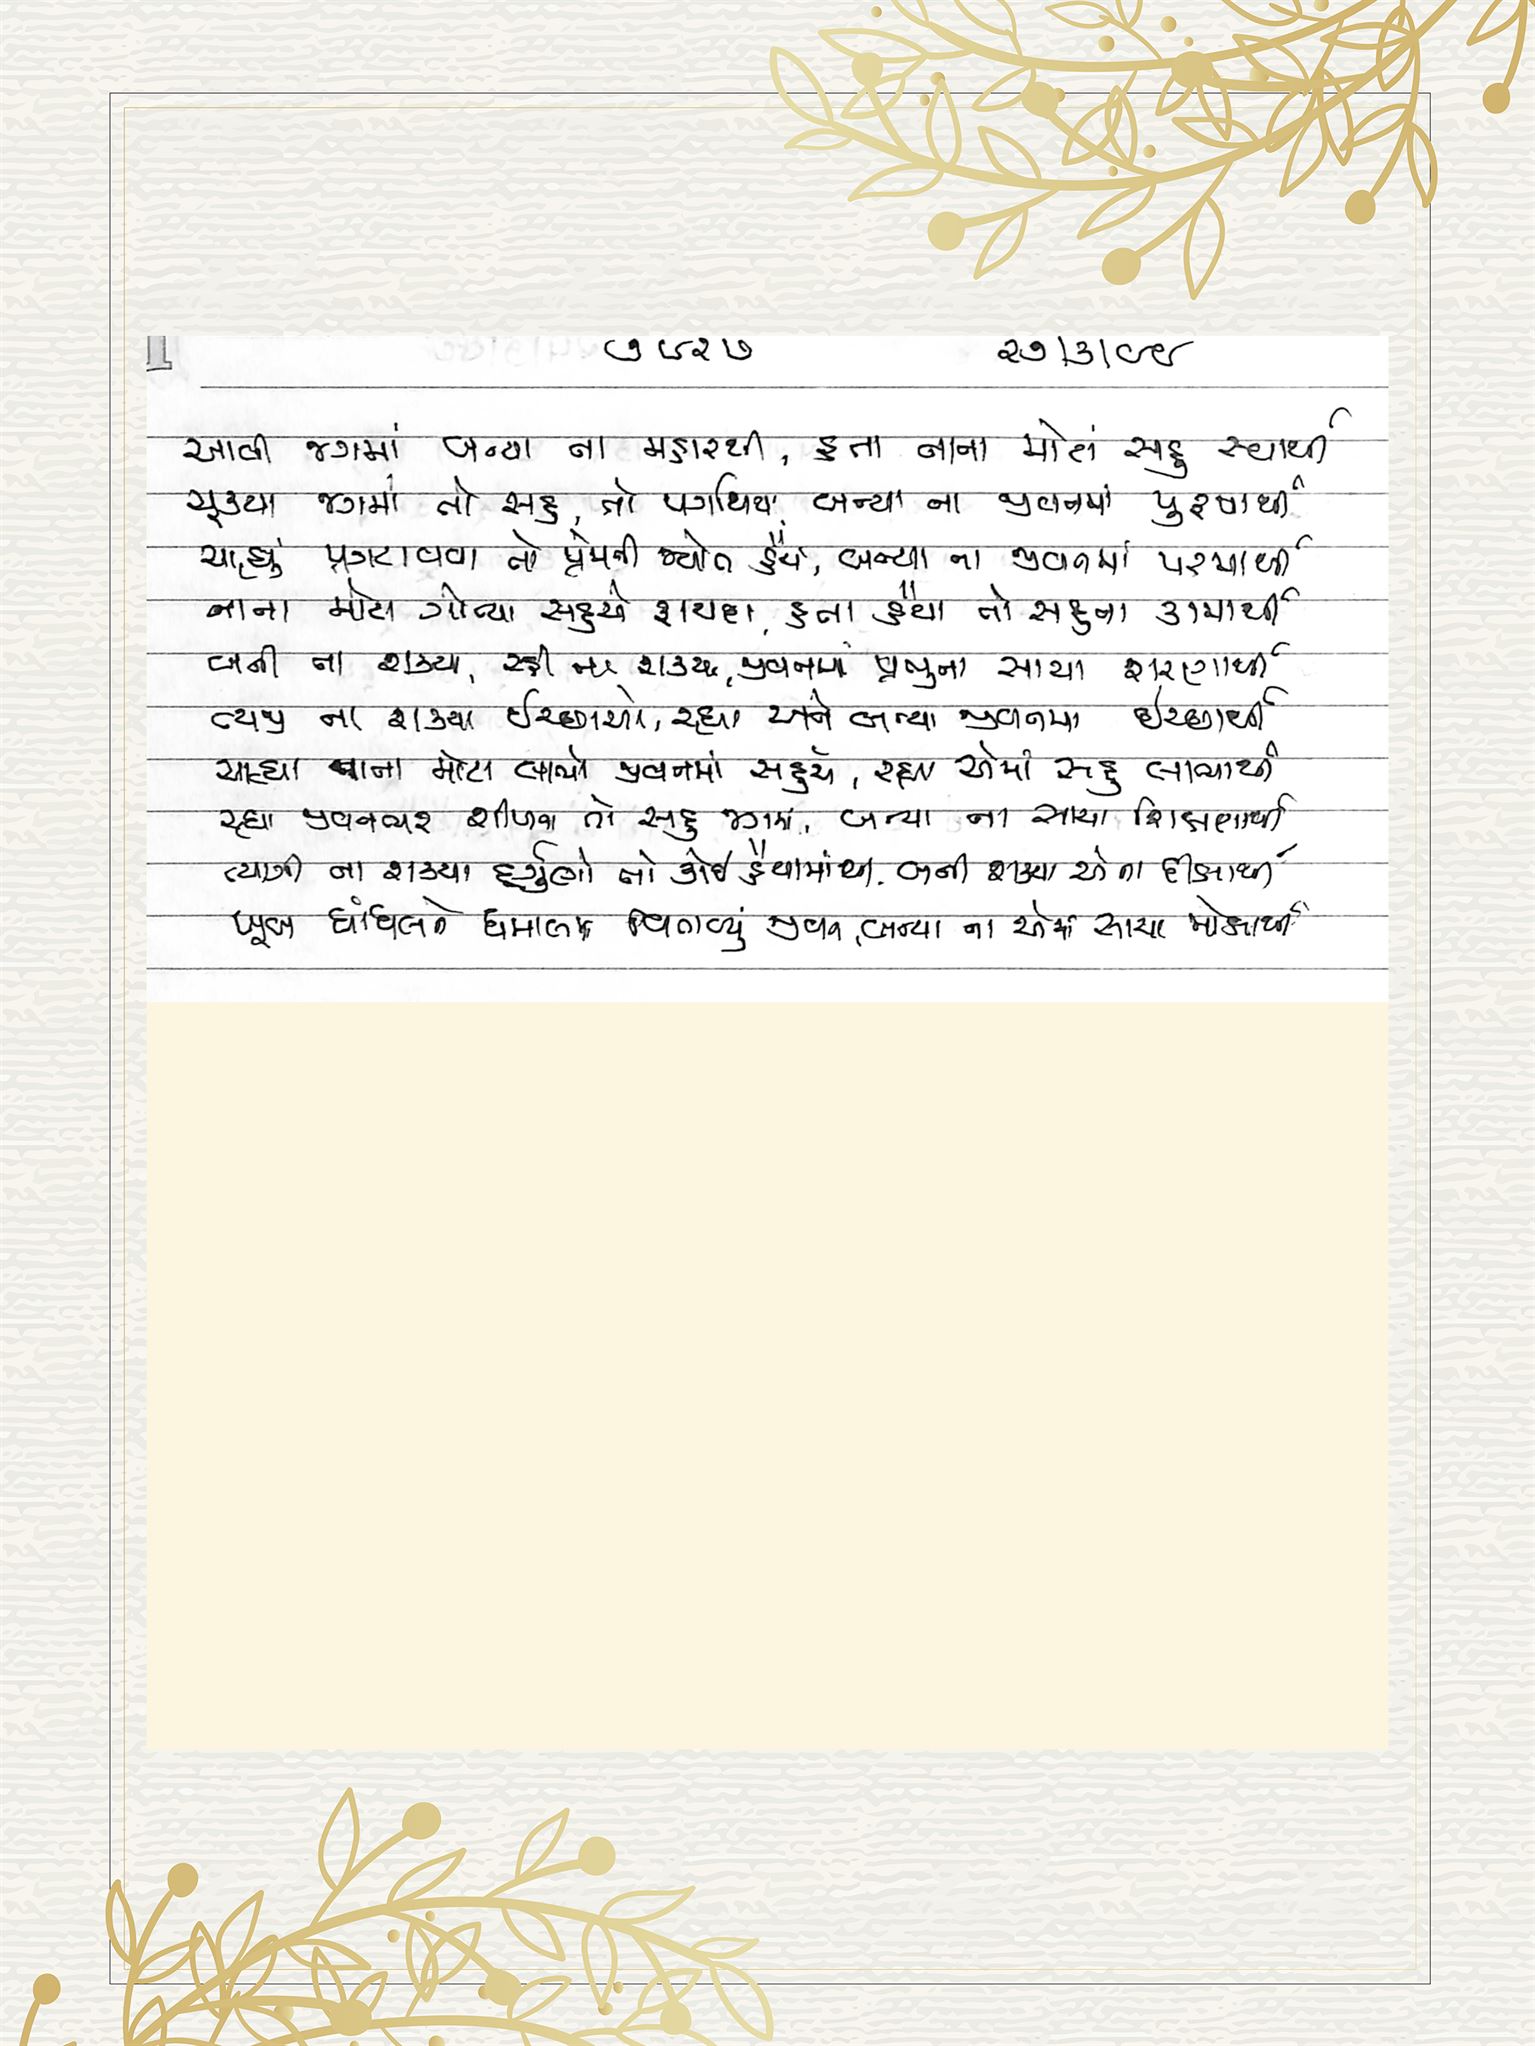 ૭૮૨૭ ૨૭/૩/૯૯
આવી જગમાં બન્યા ના મહારથી, હતા નાના મોટાં સહુ સ્વાર્થી
ચૂક્યા જગમાં તો સહુ, તો પગથિયાં, બન્યા ના જીવનમાં પુરુષાર્થી
ચાહ્યું પ્રગટાવવા તો પ્રેમની જ્યોત હૈયે, બન્યા ના જીવનમાં પરમાર્થી
નાના મોટા ગોત્યા સહુએ ફાયદા, હતા હૈયા તો સહુના કામાર્થી
બની ના શક્યા, રહી ના શક્યા, જીવનમાં પ્રભુના સાચા શરણાર્થી
ત્યજી ના શક્યા ઈચ્છાઓ, રહ્યા અને બન્યા જીવનમાં ઈચ્છાર્થી
ચાહ્યા નાના મોટા લાભો જીવનમાં સહુએ, રહ્યા એમાં સહુ લાભાર્થી
રહ્યા જીવનભર શીખતા તો સહુ જગમાં, બન્યા ના સાચા શિક્ષણાર્થી
ત્યાગી ના શક્યા દુર્ગુણો તો કોઈ હૈયામાંથી, બની શક્યા એ ના દીક્ષાર્થી
ખૂબ ધાંધલને ધમાલમાં વિતાવ્યું જીવન, બન્યા ના એમાં સાચા મોક્ષાર્થી